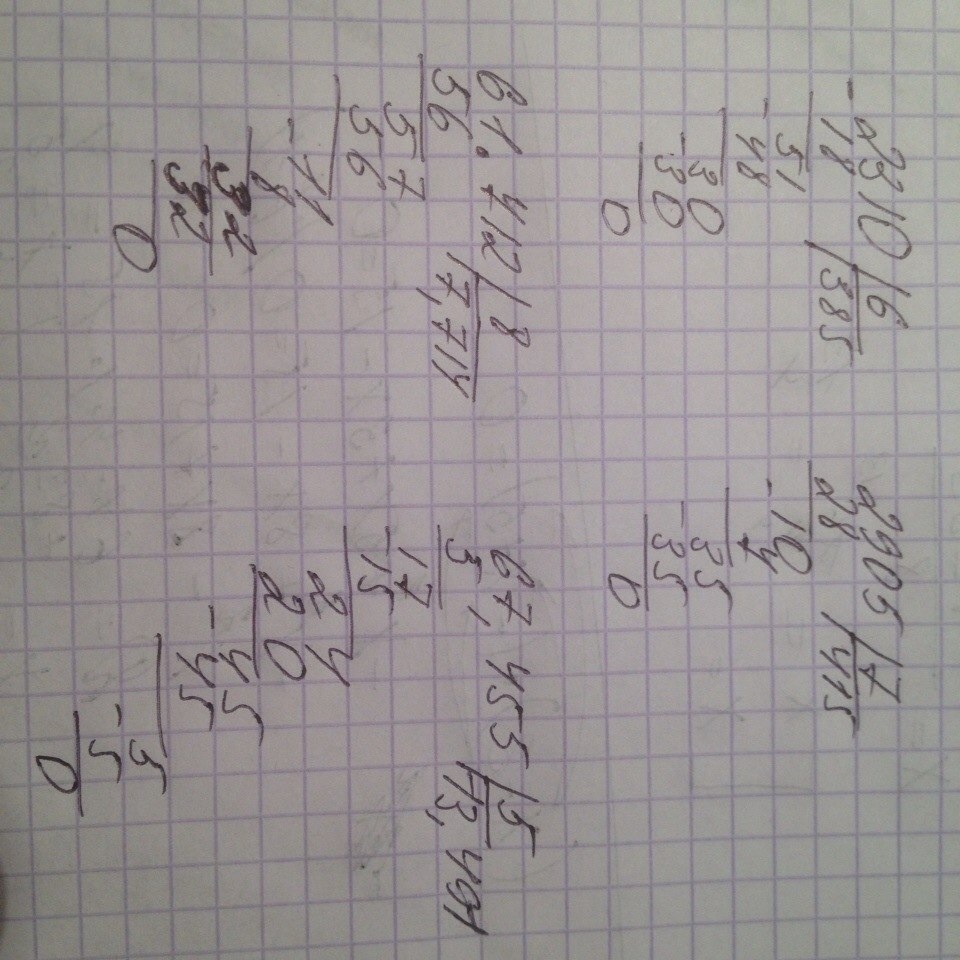 - 2310 |6
18 |385
51
- 48
30
- 30
0
2905 |7
28 |415
10
- 7
35
- 35
0
61.712 |8
56 7,714
57
56
- 11
8
32
32
0
67,455 |5
5 13,491
17
- 15
24
20
45
- 45
5
- 5
0